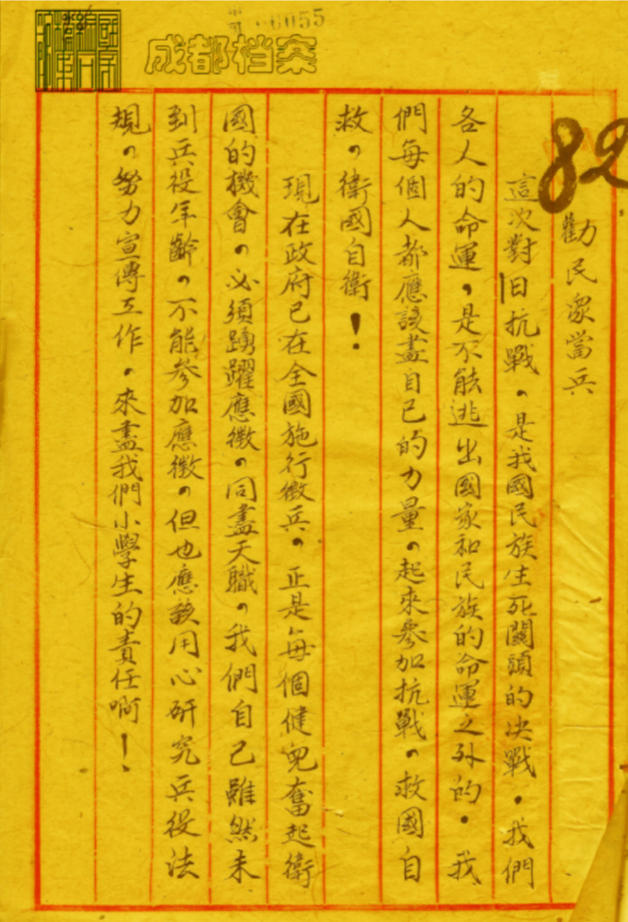 6055
成都档案
82
勸民眾當兵
這次對日抗戰,是我國民族生死關頭的決戰,我們
各人的命運,是不能逃出國家和民族的命運之外的。我
們每個人都應該盡自己的力量,起來參加抗戰,救國自
救,衛國自衛!
現在政府已在全國施行徵兵,正是每個健兒奮起衛
國的機會,必須踴躍應徵,同盡天職,我們自己雖然未
到兵役年齡,不能參加應徵,但也應該用心研究兵役法
規,努力宣傳工作,來盡我們小學生的責任啊!